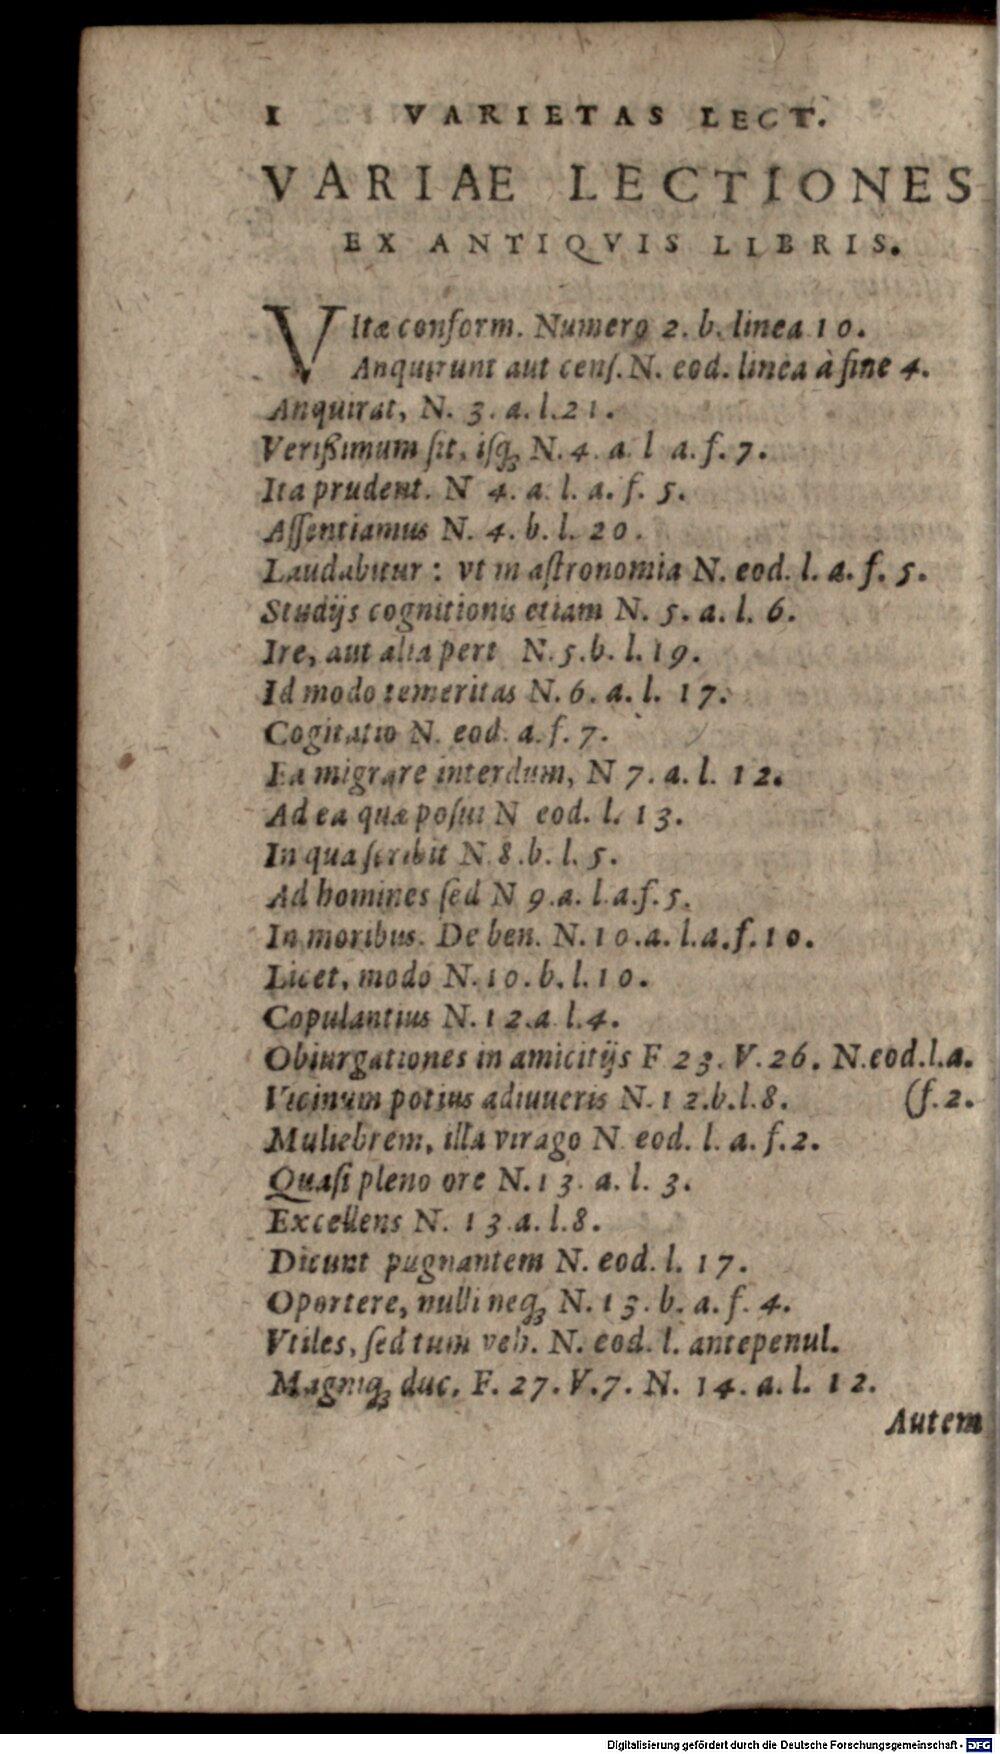 I VARIETAS LECT.
VARIAE LECTIONES
EX ANTIQVIS LIBRIS.
VItæ conform. Numero 2. b. linea 10.
Anquirunt aut cenſ. N. eod. linea à fine 4.
Anquirat, N. 3. a. l. 21.
Verißimum ſit, iſq; N. 4. a. l a. f. 7.
Ita prudent. N 4. a. l. a. f. 5.
Aſſentiamus N. 4. b. l. 20.
Laudabitur : vt in aſtronomia N. eod. l. a. f. 5.
Studijs cognitionis etiam N. 5. a. l. 6.
Ire, aut alia pert N. 5. b. l. 19.
Id modo temeritas N. 6. a. l. 17.
Cogitatio N. eod. a. f. 7.
Ea migrare interdum, N 7. a. l. 12.
Ad ea quæ poſui N eod. l. 13.
In qua ſcribit N. 8. b. l. 5.
Ad homines ſed N 9. a. l. a. f. 5.
In moribus. De ben. N. 10. a. l. a. f. 10.
Licet, modo N. 10. b. l. 10.
Copulantius N. 12. a l. 4.
Obiurgationes in amicitijs F 23. V. 26. N. eod. l. a.
Vicinum potius adiuueris N. 12. b. l. 8. (f. 2.
Muliebrem, illa virago N eod. l. a. f. 2.
Quaſi pleno ore N. 13. a. l. 3.
Excellens N. 13. a. l. 8.
Dicunt pugnantem N. eod. l. 17.
Oportere, nulli neq; N. 13. b. a. f. 4.
Vtiles, ſed tum veh. N. eod. l. antepenul.
Magniq; duc. F. 27. V. 7. N. 14. a. l. 12.
Autem
Digitalisierung gefördert durch die Deutsche Forschungsgemeinschaft - DFG